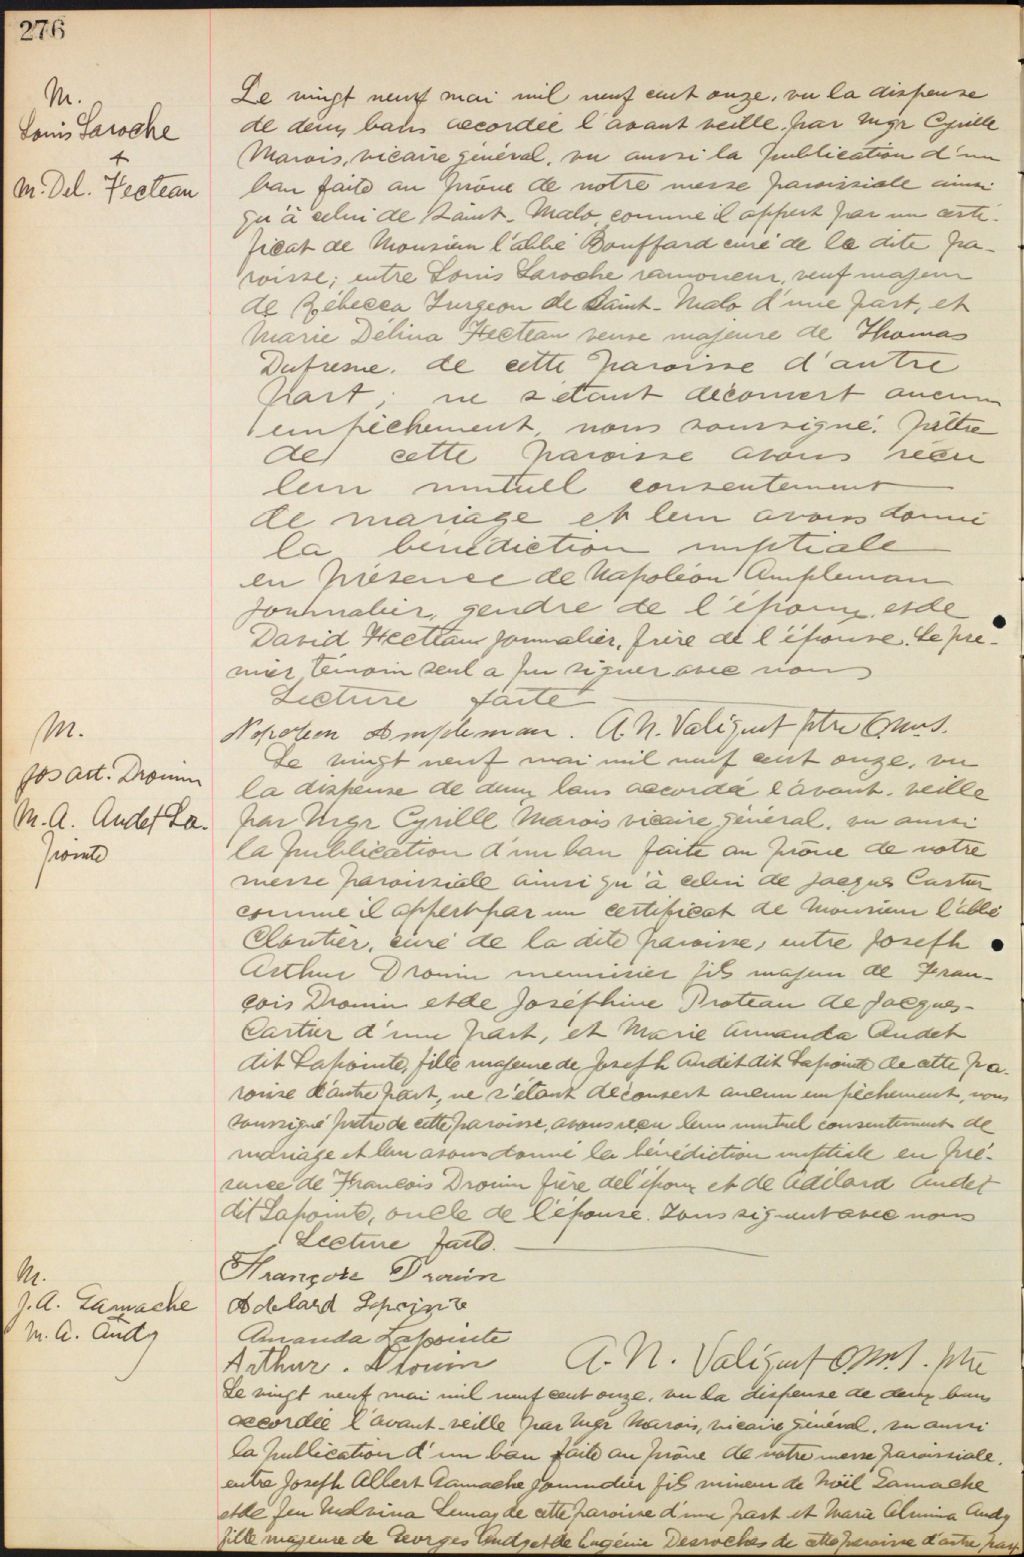 276
M.
Louis Laroche
+
M. Del. Fecteau
Le vingt neuf mai mil neuf cent onze, vu la dispense
de deux bans accordée l'avant veille, par Mgr Cyrille
Marois, vicaire général, vu aussi la publication d'un
ban faite au prône de notre messe paroissiale ainsi
qu'à celui de Saint-Malo, comme il appert par un certi-
ficat de Monsieur l'abbé Bouffard curé de la dite pa-
roisse; entre Louis Laroche ramoneur, veuf majeur
de Rébecca Turgeon de Saint-Malo d'une part, et
Marie Délina Fecteau veuve majeure de Thomas
Dufresne, de cette paroisse d'autre
part; ne s'étant découvert aucun
empêchement, nous soussigné, prêtre
de cette paroisse avons reçu
leur mutuel consentement
de mariage et leur avons donné
la bénédiction nuptiale
en présence de Napoléon Ampleman
journalier, gendre de l'époux, et de
David Fecteau journalier, frère de l'épouse. Le pre-
mier témoin seul a pu signer avec nous
Lecture faite
Napoleon Ampleman. A. N. Valiquet ptre O.M.I.
M.
Jos art. Drouin
M. A. Audet La-
pointe
Le vingt neuf mai mil neuf cent onze, vu
la dispense de deux bans accordé l'avant-veille
par Mgr Cyrille Marois vicaire général, vu aussi
la publication d'un ban faite au prône de notre
messe paroissiale ainsi qu'à celui de Jacques Cartier
comme il appert par un certificat de Monsieur l'abbé
Cloutier, curé de la dite paroisse, entre Joseph
Arthur Drouin menuisier fils majeur de Fran-
çois Drouin et de Joséphine Proteau de Jacques-
Cartier d'une part, et Marie Amanda Audet
dit Lapointe, fille majeure de Joseph Audet dit Lapointe de cette pa-
roisse d'autre part, ne s'étant découvert aucun empêchement, nous
soussigné prêtre de cette paroisse, avons reçu leur mutuel consentement de
mariage et leur avons donné la bénédiction nuptiale en pré-
sence de François Drouin frère de l'époux et de Adélard Audet
dit Lapointe, oncle de l'épouse. Tous signent avec nous
Lecture faite.
François Drouin
Adelard Lapointe
Amanda Lapointe
Arthur. Drouin A. N. Valiquet O.M.I. ptre
M.
J. A. Gamache
+
M. A. Audy
Le vingt neuf mai mil neuf cent onze, vu la dispense de deux bans
accordée l'avant-veille par Mgr Marois, vicaire général, vu aussi
la publication d'un ban faite au prône de notre messe paroissiale,
entre Joseph Albert Gamache fils mineur de Noël Gamache
et de feu Malvina Lemay de cette paroisse d'une part et Marie Alvina Audy
fille majeure de Georges Audy et de Eugénie Desroches de cette paroisse d'autre part